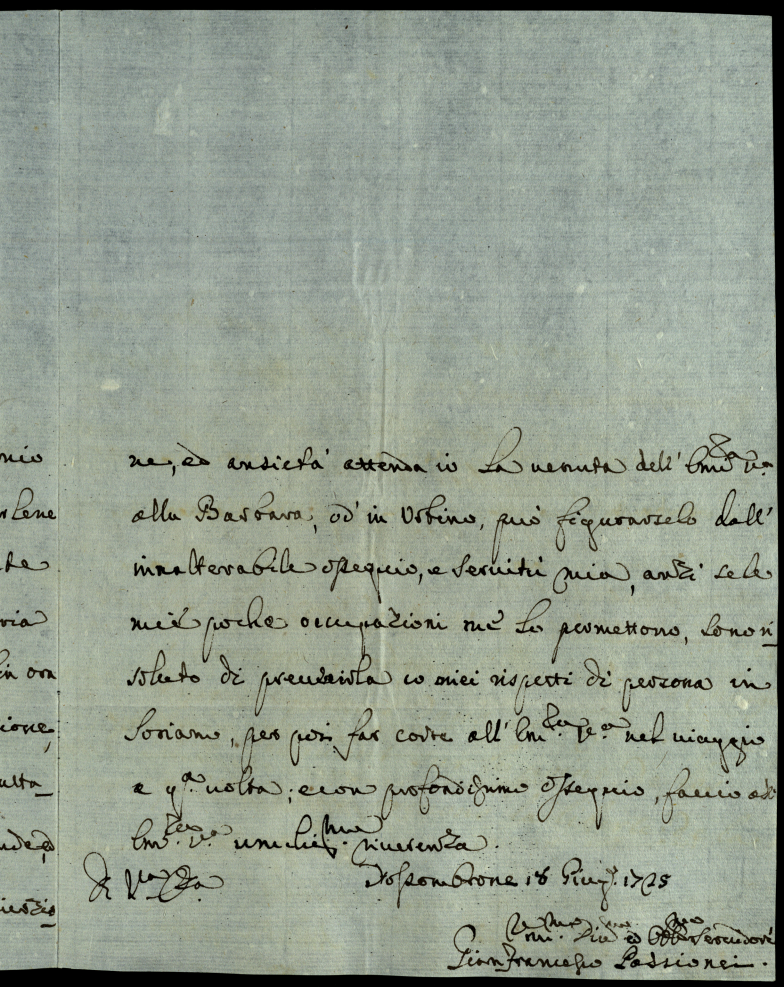 nio
ne, ed ansietà attenda io la venuta dell' Em.za V.ra
alla Barbara, od' in Urbino, può figurarselo dall'
inalterabile ossequio, e servitù mia, anzi se le
ria
mie poche occupazioni me lo promettono, sono ri_
in ora
soluto di prevenirla co miei rispetti di persona in
ione,
Soriano, per poi far corte all' Em.za V.ra nel viaggio
ulta_
a q.a volta; e con profondissimo ossequio, faccio all'
Em.za V.ra umiliss.ma riverenza.
Di V.ra Em.za Fossombrone 18 Giug.o 1725
Um.mo Div.mo ed Obb.mo Servidore
Gianfrancesco Passionei.